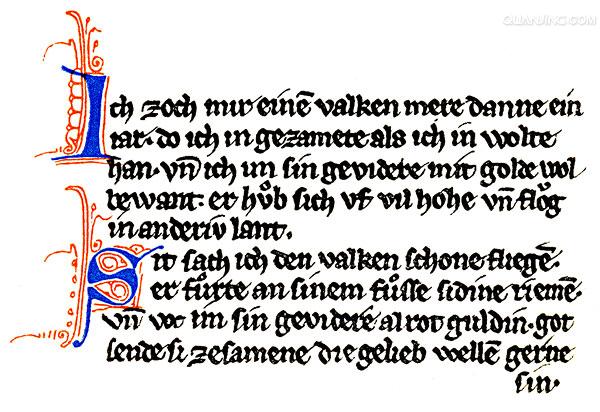 QUANJING.COM
Ich zoch mir einē valken mere danne ein
iar· do ich in gezamete als ich in wolte
han· vn̄ ich im sin gevidere mit golde wol
bewant· er hůb sich vf vil hohe vn̄ flǒg
in anderiv lant.
Sit sach ich den valken schone fliegē·
er fůrte an sinem fůsse sidine riemē·
vn̄ wc im sin gevidere alrot guldin· got
sende si zesamene die gelieb wellē gerne
sin·